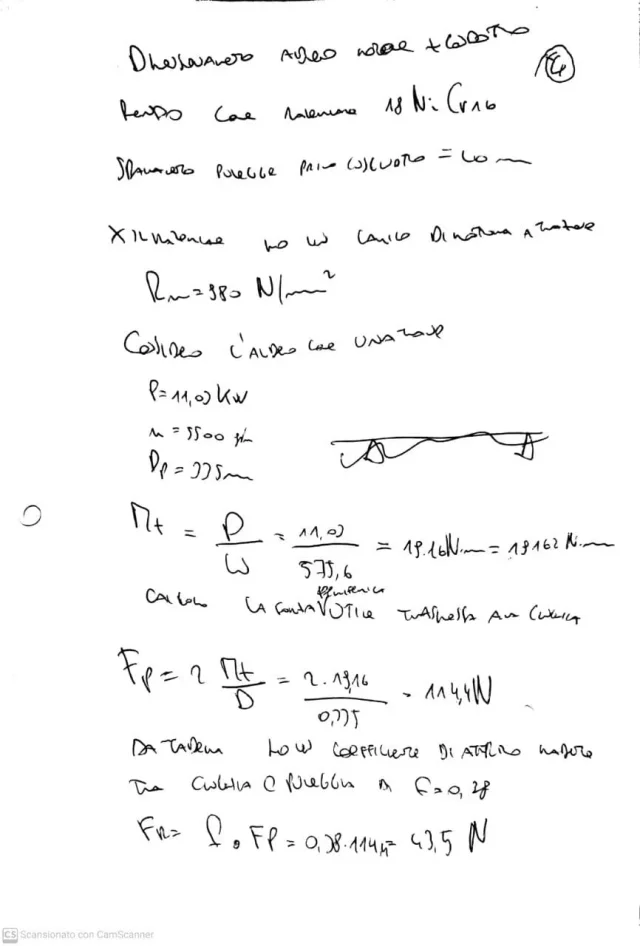 DIMENSIONAMENTO ALBERO MOTORE + CONDOTTO
4
PRENDO COME MATERIALE 18 Ni Cr 16
DIAMETRO PULEGGE PRIMO = 40 mm
X IL MATERIALE HO UN CARICO DI ROTTURA A TRAZIONE
Rm = 980 N/mm²
CONSIDERO L'ALBERO COME UNA TRAVE
P = 11,03 kW
n = 5500 g/m
Dp = 335 mm
Mt = P/ω = 11,03/575,6 = 19.16 N·m = 19162 N·mm
CALCOLO LA FORZA PERIFERICA UTILE TRASMESSA ALLA CINGHIA
Fp = 2 Mt/D = 2·19,16/0,335 = 114,4 N
DA TABELLA HO UN COEFFICIENTE DI ATTRITO
TRA CINGHIA E PULEGGIA DI f = 0,38
FR = f · Fp = 0,38·114,4 = 43,5 N
CS Scansionato con CamScanner